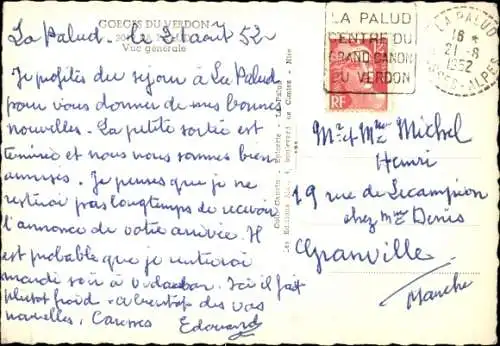 GORGES DU VERDON
Vue générale
La Palud. le 21 août 52
Je profites du sejour à La Palud
pour vous donner de mes bonnes
nouvelles. La petite sortie est
terminé et nous nous sommes bien
amuses. Je penses que je ne
resterai pas longtemps de recevoir
l'annonce de votre arrivée. Il
est probable que je rentrerai
mardi soir à Ici il fait
plutot froid. a bientot des vos
nouvelles, Caresses Edouard
LA PALUD
CENTRE DU
GRAND CANON
DU VERDON
RF
12
LA PALUD
16 *
21-8
1952
BASSES-ALPES
Mr et Mme Michel
Henri
19 rue de Lecampion
chez Mme Denis
Granville
Manche